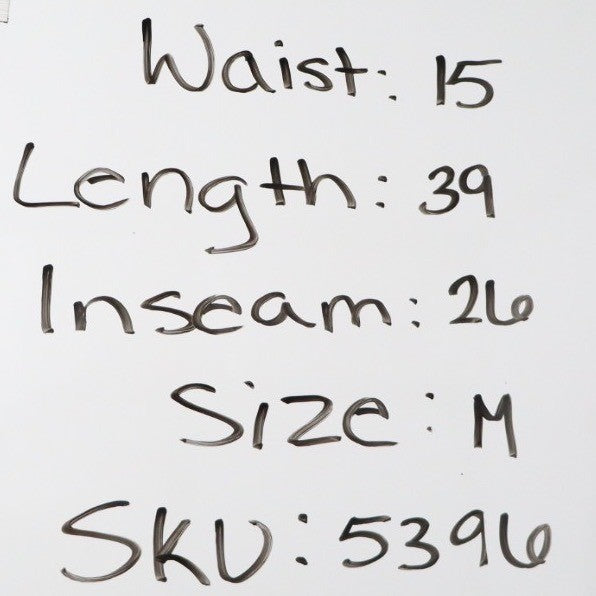 Waist: 15
Length: 39
Inseam: 26
Size: M
SKU: 5396